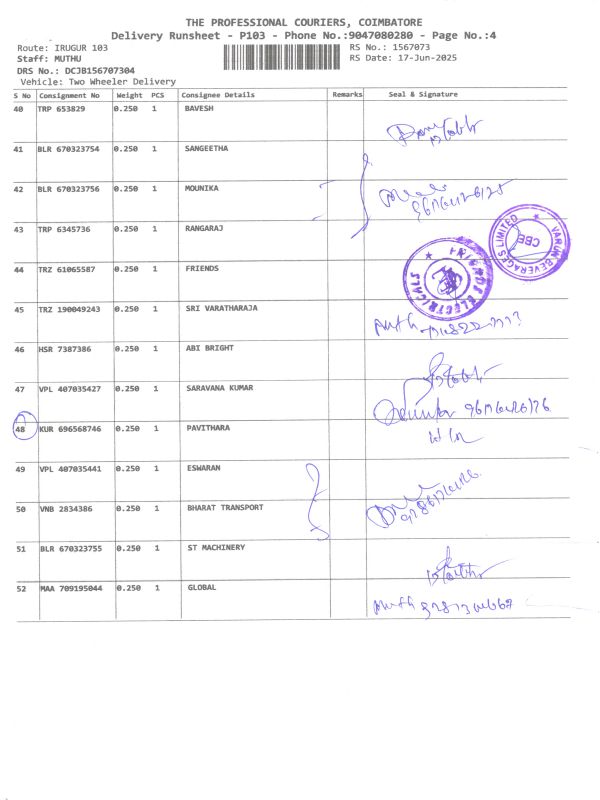 THE PROFESSIONAL COURIERS, COIMBATORE
Delivery Runsheet - P103 - Phone No.:9047080280 - Page No.:4
Route: IRUGUR 103 RS No.: 1567073
Staff: MUTHU RS Date: 17-Jun-2025
DRS No.: DCJB156707304
Vehicle: Two Wheeler Delivery
S No Consignment No Weight PCS Consignee Details Remarks Seal & Signature
40 TRP 653829 0.250 1 BAVESH
41 BLR 670323754 0.250 1 SANGEETHA
42 BLR 670323756 0.250 1 MOUNIKA
43 TRP 6345736 0.250 1 RANGARAJ
VARUN BEVERAGES LIMITED
CBE
44 TRZ 61065587 0.250 1 FRIENDS
FRIENDS ELECTRICALS
45 TRZ 190049243 0.250 1 SRI VARATHARAJA
46 HSR 7387386 0.250 1 ABI BRIGHT
47 VPL 407035427 0.250 1 SARAVANA KUMAR
48 KUR 696568746 0.250 1 PAVITHARA
49 VPL 407035441 0.250 1 ESWARAN
50 VNB 2834386 0.250 1 BHARAT TRANSPORT
51 BLR 670323755 0.250 1 ST MACHINERY
52 MAA 709195044 0.250 1 GLOBAL